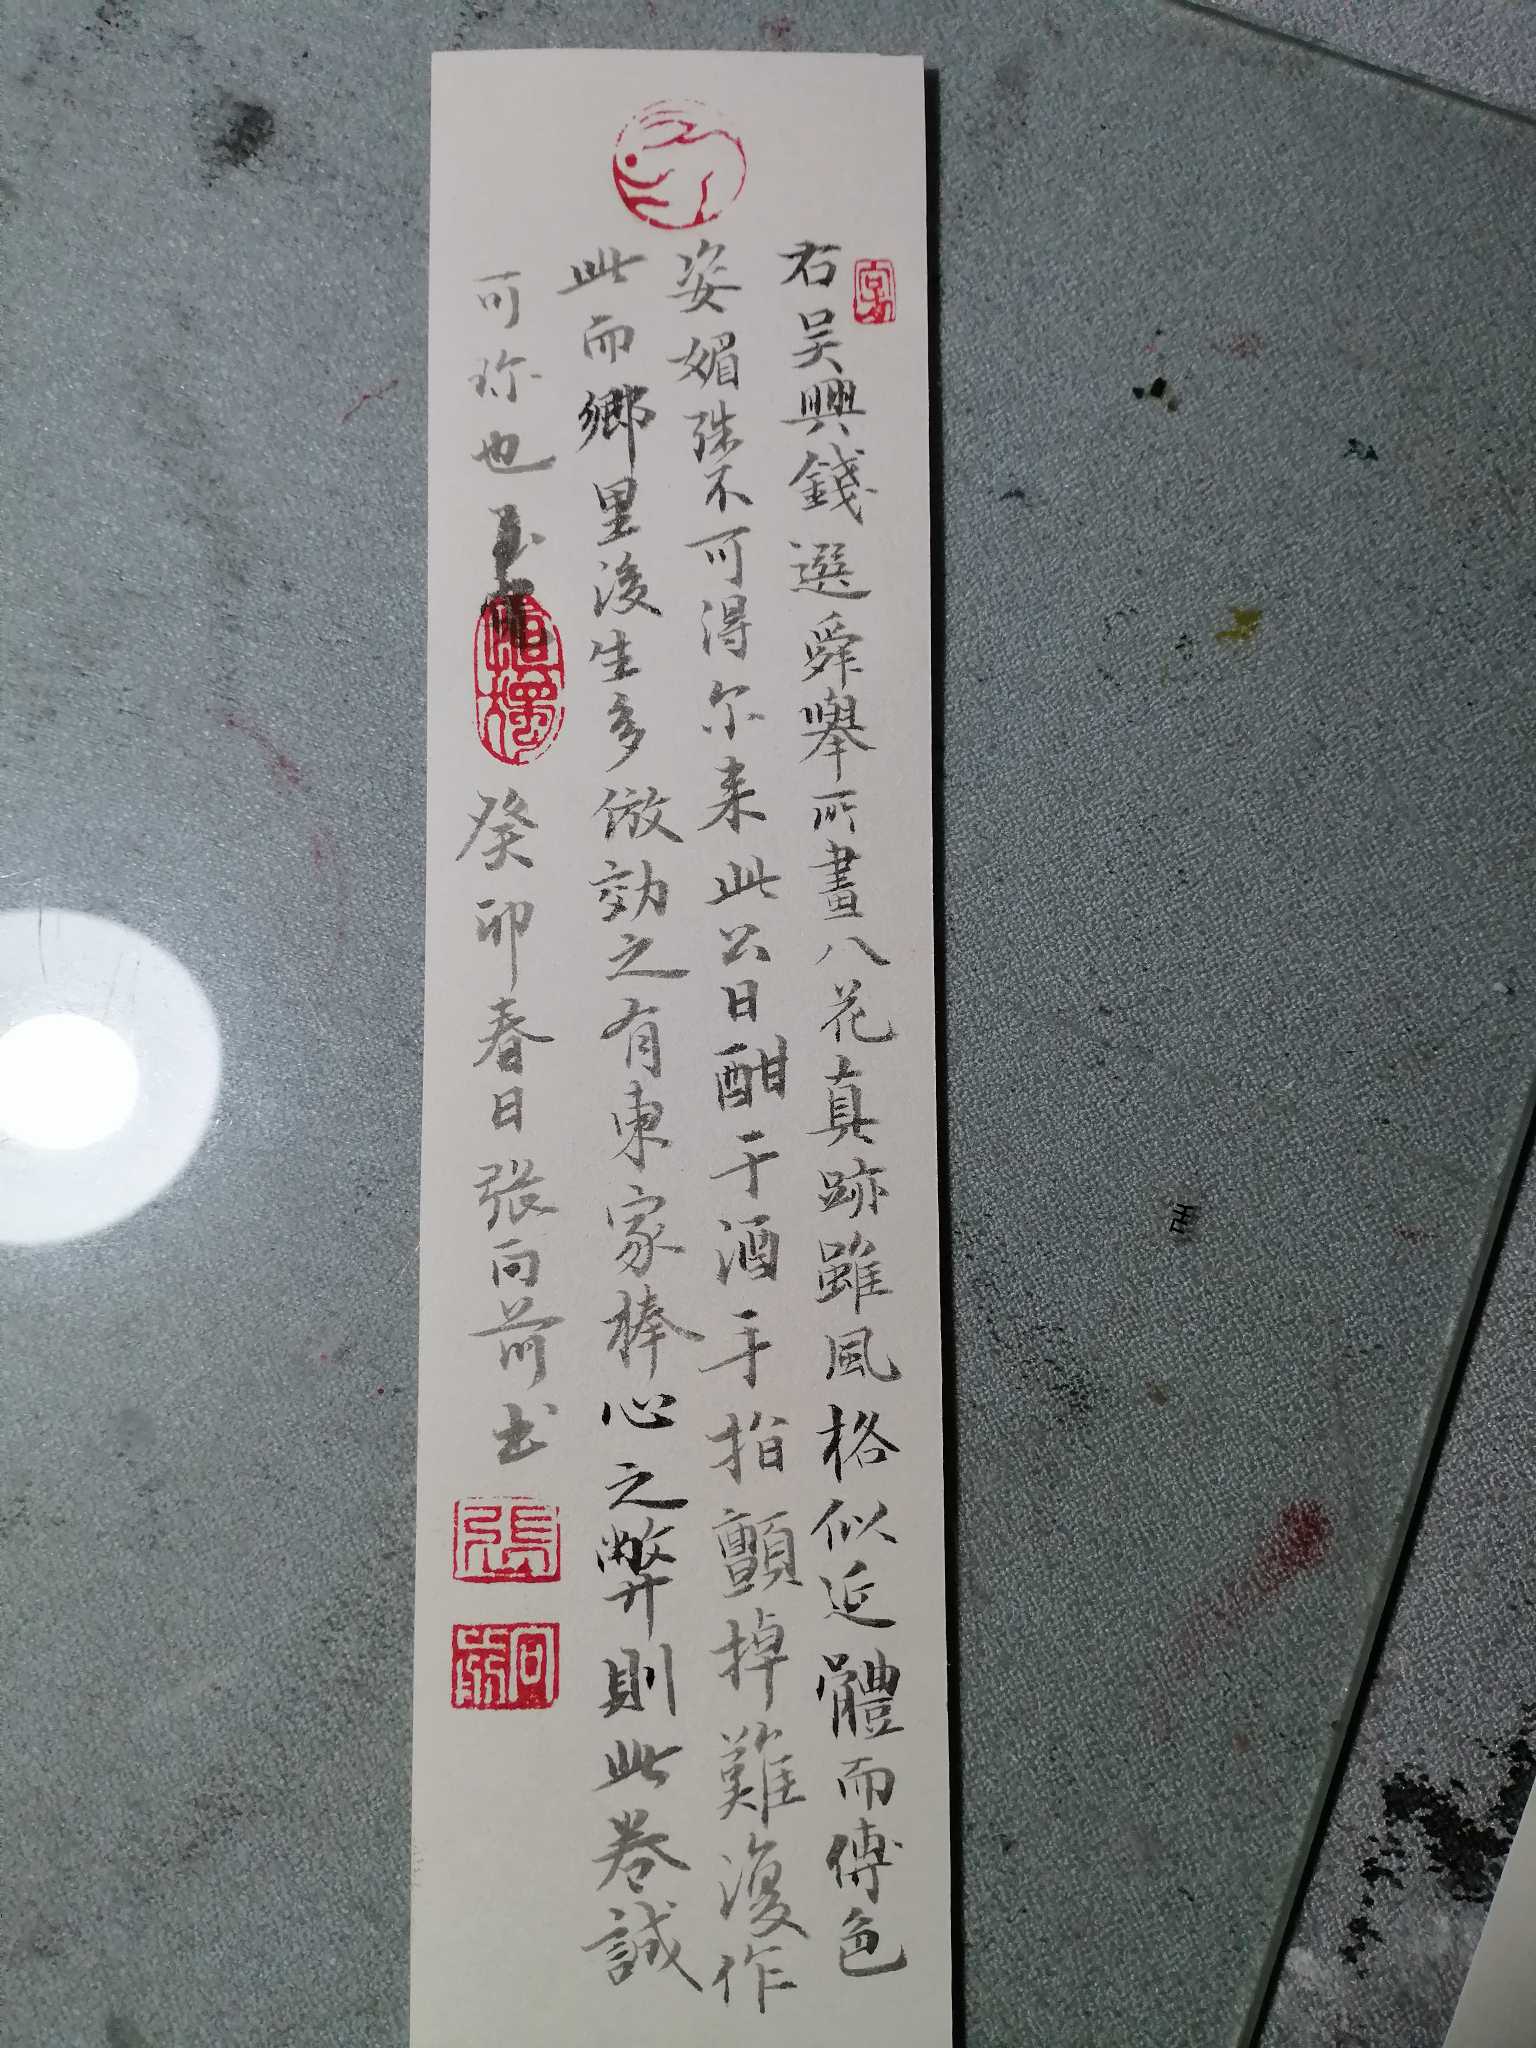 右吴興錢選舜舉所畫八花真跡雖風格似近體而傅色
姿媚殊不可得尔来此公日酣于酒手指顫掉難復作
此而鄉里後生多倣効之有東家捧心之弊則此卷誠
可珎也
癸卯春日張向前书
張
向前